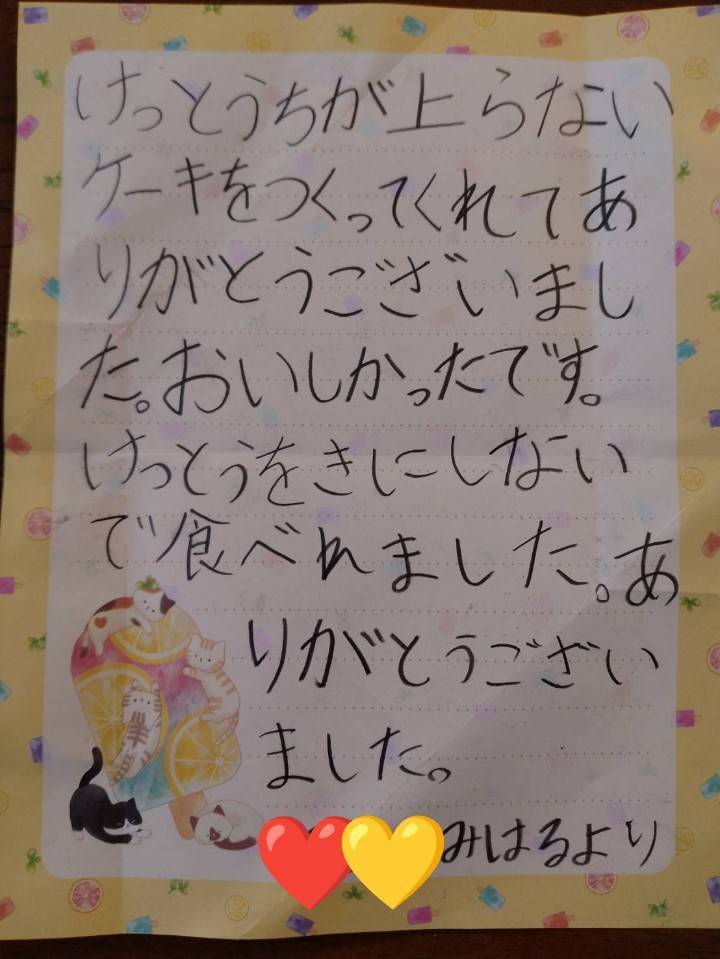 けっとうちが上らない
ケーキをつくってくれてあ
りがとうございまし
た。おいしかったです。
けっとうをきにしない
で食べれました。あ
りがとうござい
ました。
みはるより